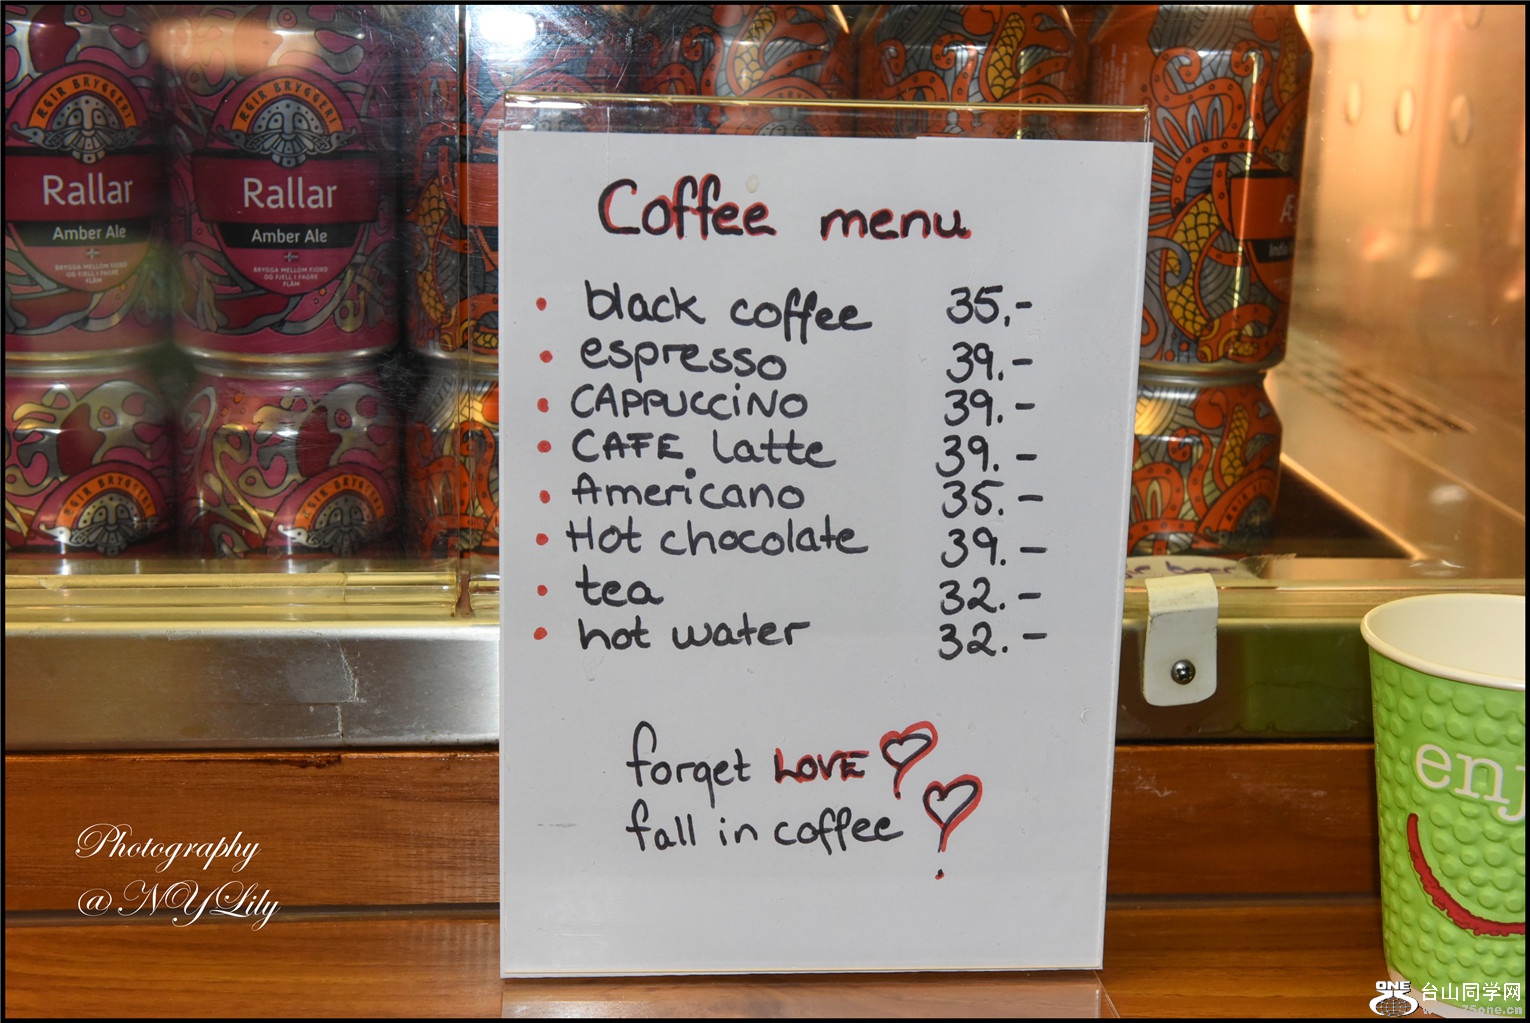 ÆGIR BRYGGERI
Rallar
Amber Ale
BRYGGA MELLOM FJORD
OG FJELL I FAGRE
FLÅM
ÆGIR BRYGGERI
Rallar
Amber Ale
BRYGGA MELLOM FJORD
OG FJELL I FAGRE
FLÅM
ÆGIR BRYGGERI
ÆGIR BRYGGERI
Coffee menu
• black coffee 35,-
• espresso 39.-
• CAPPUCCiNO 39.-
• CAFE Latte 39.-
• Americano 35.-
• Hot chocolate 39.-
• tea 32.-
• hot water 32.-
forget LOVE
fall in coffee
enj
Photography
@NYLily
ONE 台山同学网